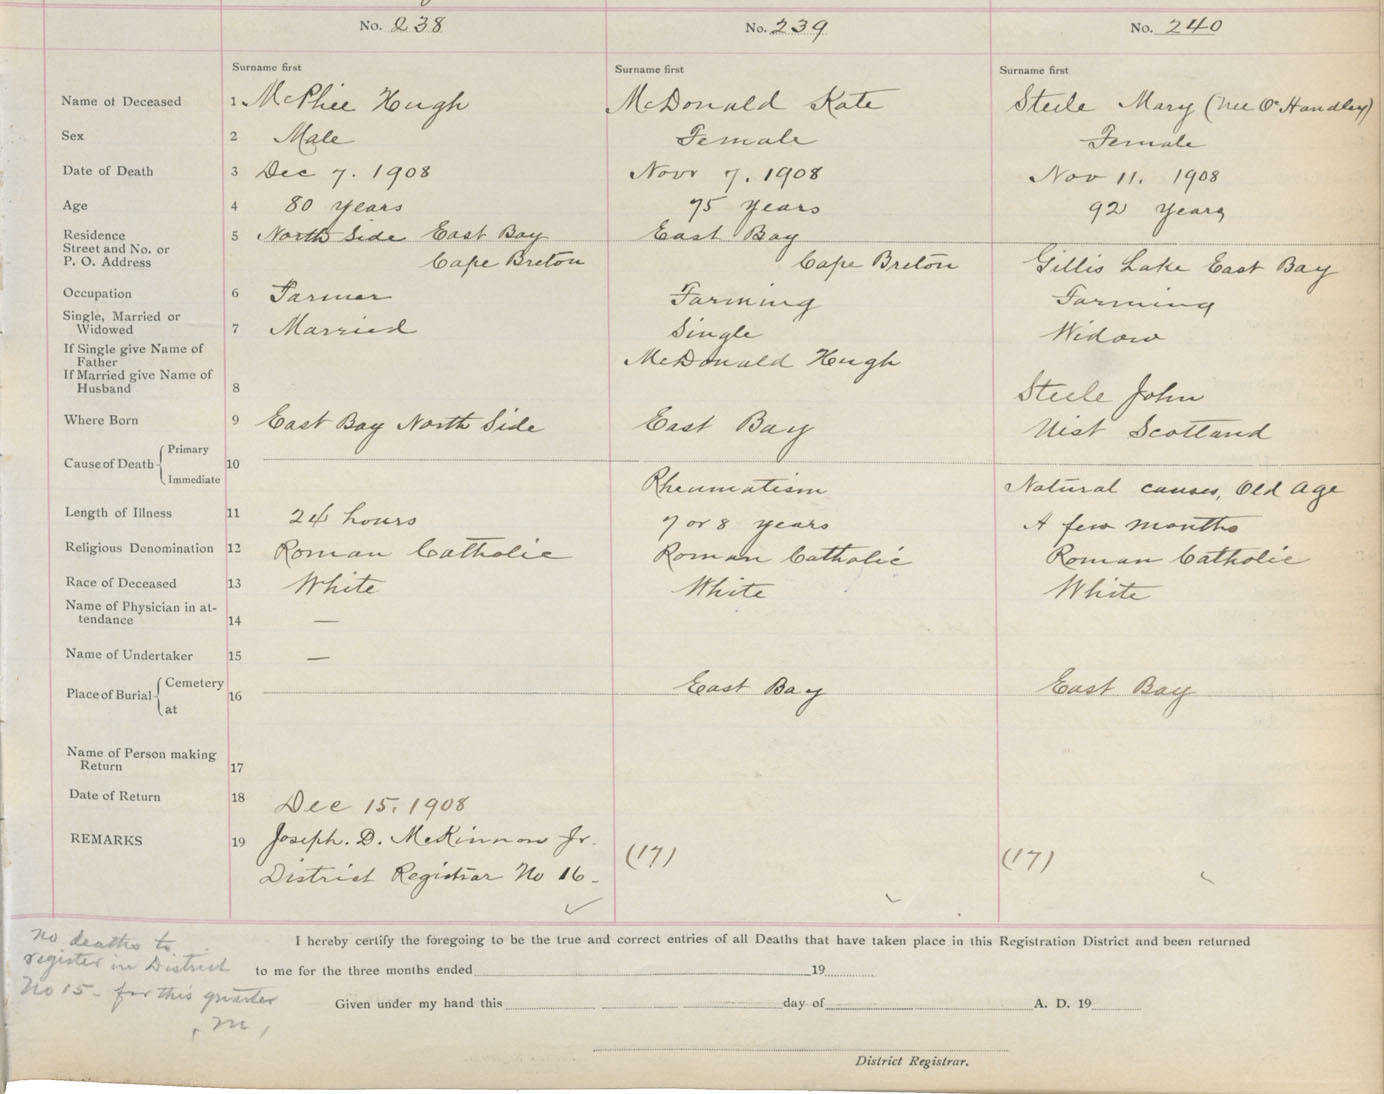 No. 238 No. 239 No. 240
Surname first Surname first Surname first
Name of Deceased 1 McPhee Hugh McDonald Kate Steele Mary (nee O'Handley)
Sex 2 Male Female Female
Date of Death 3 Dec 7. 1908 Novr 7. 1908 Nov 11. 1908
Age 4 80 years 75 years 92 years
Residence 5 North Side East Bay East Bay
Street and No. or
P. O. Address Cape Breton Cape Breton Gillis Lake East Bay
Occupation 6 Farmer Farming Farming
Single, Married or
Widowed 7 Married Single Widow
If Single give Name of
Father McDonald Hugh
If Married give Name of
Husband 8 Steele John
Where Born 9 East Bay North Side East Bay Uist Scotland
Cause of Death Primary
10
Immediate Rheumatism Natural causes, Old Age
Length of Illness 11 24 hours 7 or 8 years A few months
Religious Denomination 12 Roman Catholic Roman Catholic Roman Catholic
Race of Deceased 13 White White White
Name of Physician in at-
tendance 14 —
Name of Undertaker 15 —
Place of Burial Cemetery East Bay East Bay
16
at
Name of Person making
Return 17
Date of Return 18 Dec 15. 1908
REMARKS 19 Joseph. D. McKinnon Jr. (17) (17)
District Registrar No 16 -
I hereby certify the foregoing to be the true and correct entries of all Deaths that have taken place in this Registration District and been returned
to me for the three months ended 19
Given under my hand this day of A. D. 19
District Registrar.
no deaths to
register in District
No 15 - for this quarter
, M,